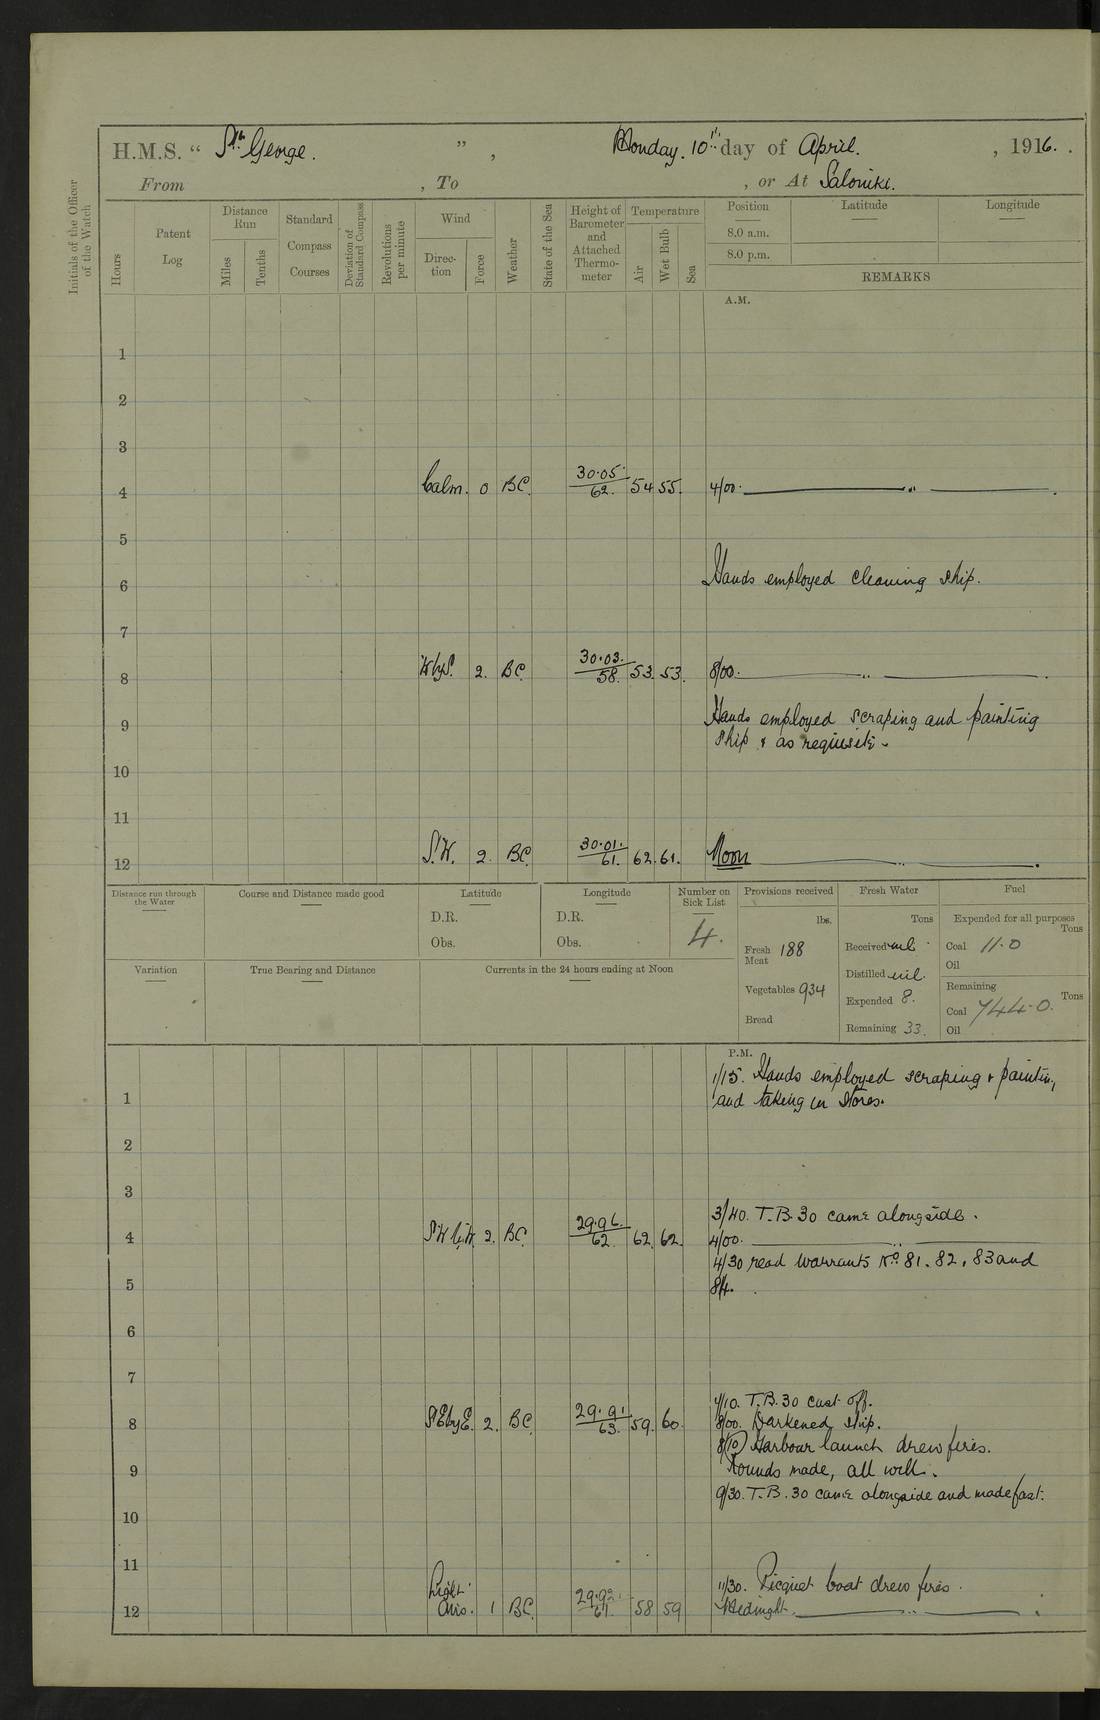 H.M.S. “ St. George. ” , Monday. 10th day of April. , 1916.
From , To , or At Saloniki.
Initials of the Officer of the Watch
Hours
Patent Log
Distance Run
Miles
Tenths
Standard Compass Courses
Deviation of Standard Compass
Revolutions per minute
Wind
Direction
Force
Weather
State of the Sea
Height of Barometer and Attached Thermometer
Temperature
Air
Wet Bulb
Sea
Position
8.0 a.m.
8.0 p.m.
Latitude
Longitude
REMARKS
A.M.
1
2
3
4 Calm. 0 BC. 30.05 62. 54 55. 4/00. „ .
5
6 Hands employed cleaning ship.
7
8 W by S. 2. BC. 30.03. 58. 53. 53. 8/00. „ .
9 Hands employed scraping and painting
ship & as requisite.
10
11
12 S.W. 2. BC. 30.01. 61. 62. 61. Noon „ .
Distance run through the Water
Course and Distance made good
Latitude
D.R.
Obs.
Longitude
D.R.
Obs.
Number on Sick List
4.
Provisions received
lbs.
Fresh Meat 188
Vegetables 934
Bread
Fresh Water
Tons
Received nil
Distilled nil.
Expended 8.
Remaining 33.
Fuel
Expended for all purposes
Tons
Coal 11.0
Oil
Remaining
Tons
Coal 744.0.
Oil
Variation
True Bearing and Distance
Currents in the 24 hours ending at Noon
P.M.
1/15. Hands employed scraping & paintin,
1 and taking in stores.
2
3
3/40. T.B. 30 came alongside.
4 S.W by W. 2. BC. 29.96. 62. 62. 62. 4/00. „
4/30 read warrants No. 81. 82, 83 and
5 84.
6
7
T.B. 30 cast off.
8 SE by E. 2. BC 29.91 63. 59. 60. 8/00. Darkened ship.
8/10 Harbour launch drew fires.
9 Rounds made, all well.
9/30. T.B. 30 came alongside and made fast.
10
11
11/30. Picquet boat drew fires.
12 Light airs. 1 BC. 29.92 61. 58 59 Midnight. „ .